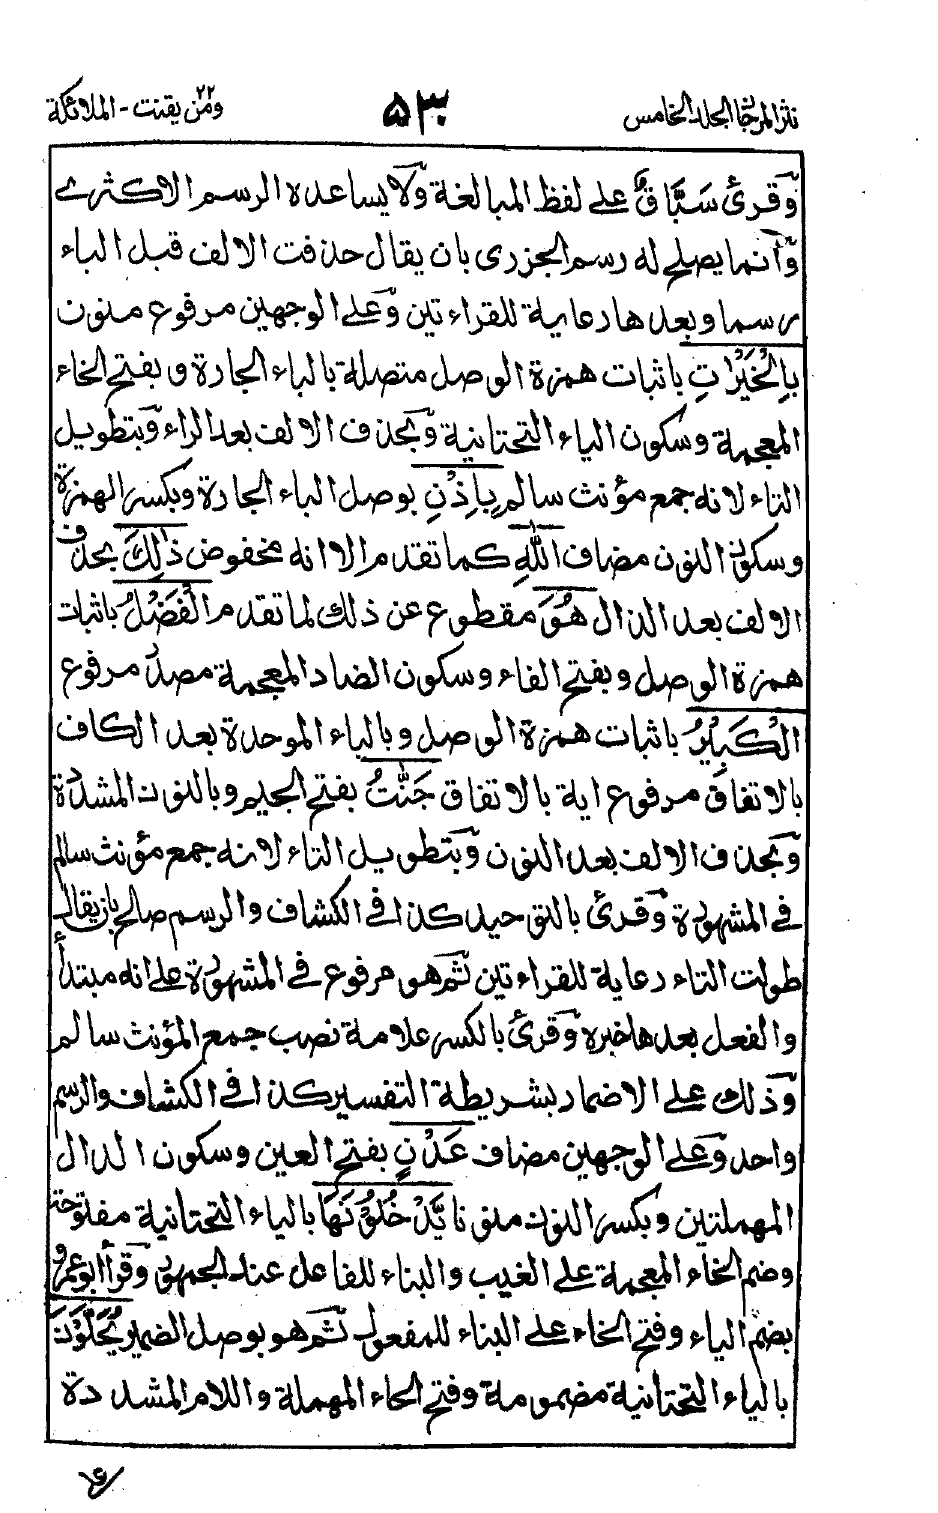 نثر المرجان المجلد الخامس ۵۳۰ ومن يقنت ۲۲ - الملائكة
وَّقرئ سَبَّاقٌ على لفظ المبالغة وَّلا يساعده الرسم الاكثرے
وَّانما يصلح له رسم الجزری بان يقال حذفت الالف قبل الباء
رسما وبعدها رعاية للقراءتين وَّعلى الوجهين مرفوع منون
بِالْخَيْرٰتِ باثبات همزة الوصل متصلة بالباء الجارة و بفتح الخاء
المعجمة وسكون الياء التحتانية وَّبحذف الالف بعد الراء وَّبتطويل
التاء لانه جمع مؤنث سالم بِاِذْنِ بوصل الباء الجارة وبكسر الهمزة
وسكون النون مضاف اللّٰهِ كما تقدم الا انه مخفوض ذٰلِكَ بحذف
الالف بعد الذال هُوَ مقطوع عن ذلك لما تقدم الْفَضْلُ باثبات
همزة الوصل وبفتح الفاء وسكون الضاد المعجمة مصدر مرفوع
الْكَبِيْرُ باثبات همزة الوصل وبالباء الموحدة بعد الكاف
بالاتفاق مرفوع اية بالاتفاق جَنّٰتُ بفتح الجيم وبالنون المشددة
وَّبحذف الالف بعد النون وَّبتطويل التاء لانه جمع مؤنث سالم
فى المشهورة وَّقرئ بالتوحيد كذا فى الكشاف والرسم صالح بان يقال
طولت التاء رعاية للقراءتين ثم هو مرفوع فى المشهورة على انه مبتدأ
والفعل بعدها خبره وَّقرئ بالكسر علامة نصب جمع المؤنث سالم
وَّذلك على الاضمار بشريطة التفسير كذا فى الكشاف والرسم
واحد وَّعلى الوجهين مضاف عَدْنٍ بفتح العين وسكون الدال
المهملتين وبكسر النون منونا يَّدْخُلُوْنَهَا بالياء التحتانية مفتوحة
وضم الخاء المعجمة على الغيب والبناء للفاعل عند الجمهور وَّقرأ ابو عمرو
بضم الياء وفتح الخاء على البناء للمفعول ثم هو بوصل الضمير يُحَلَّوْنَ
بالياء التحتانية مضمومة وفتح الحاء المهملة واللام المشددة